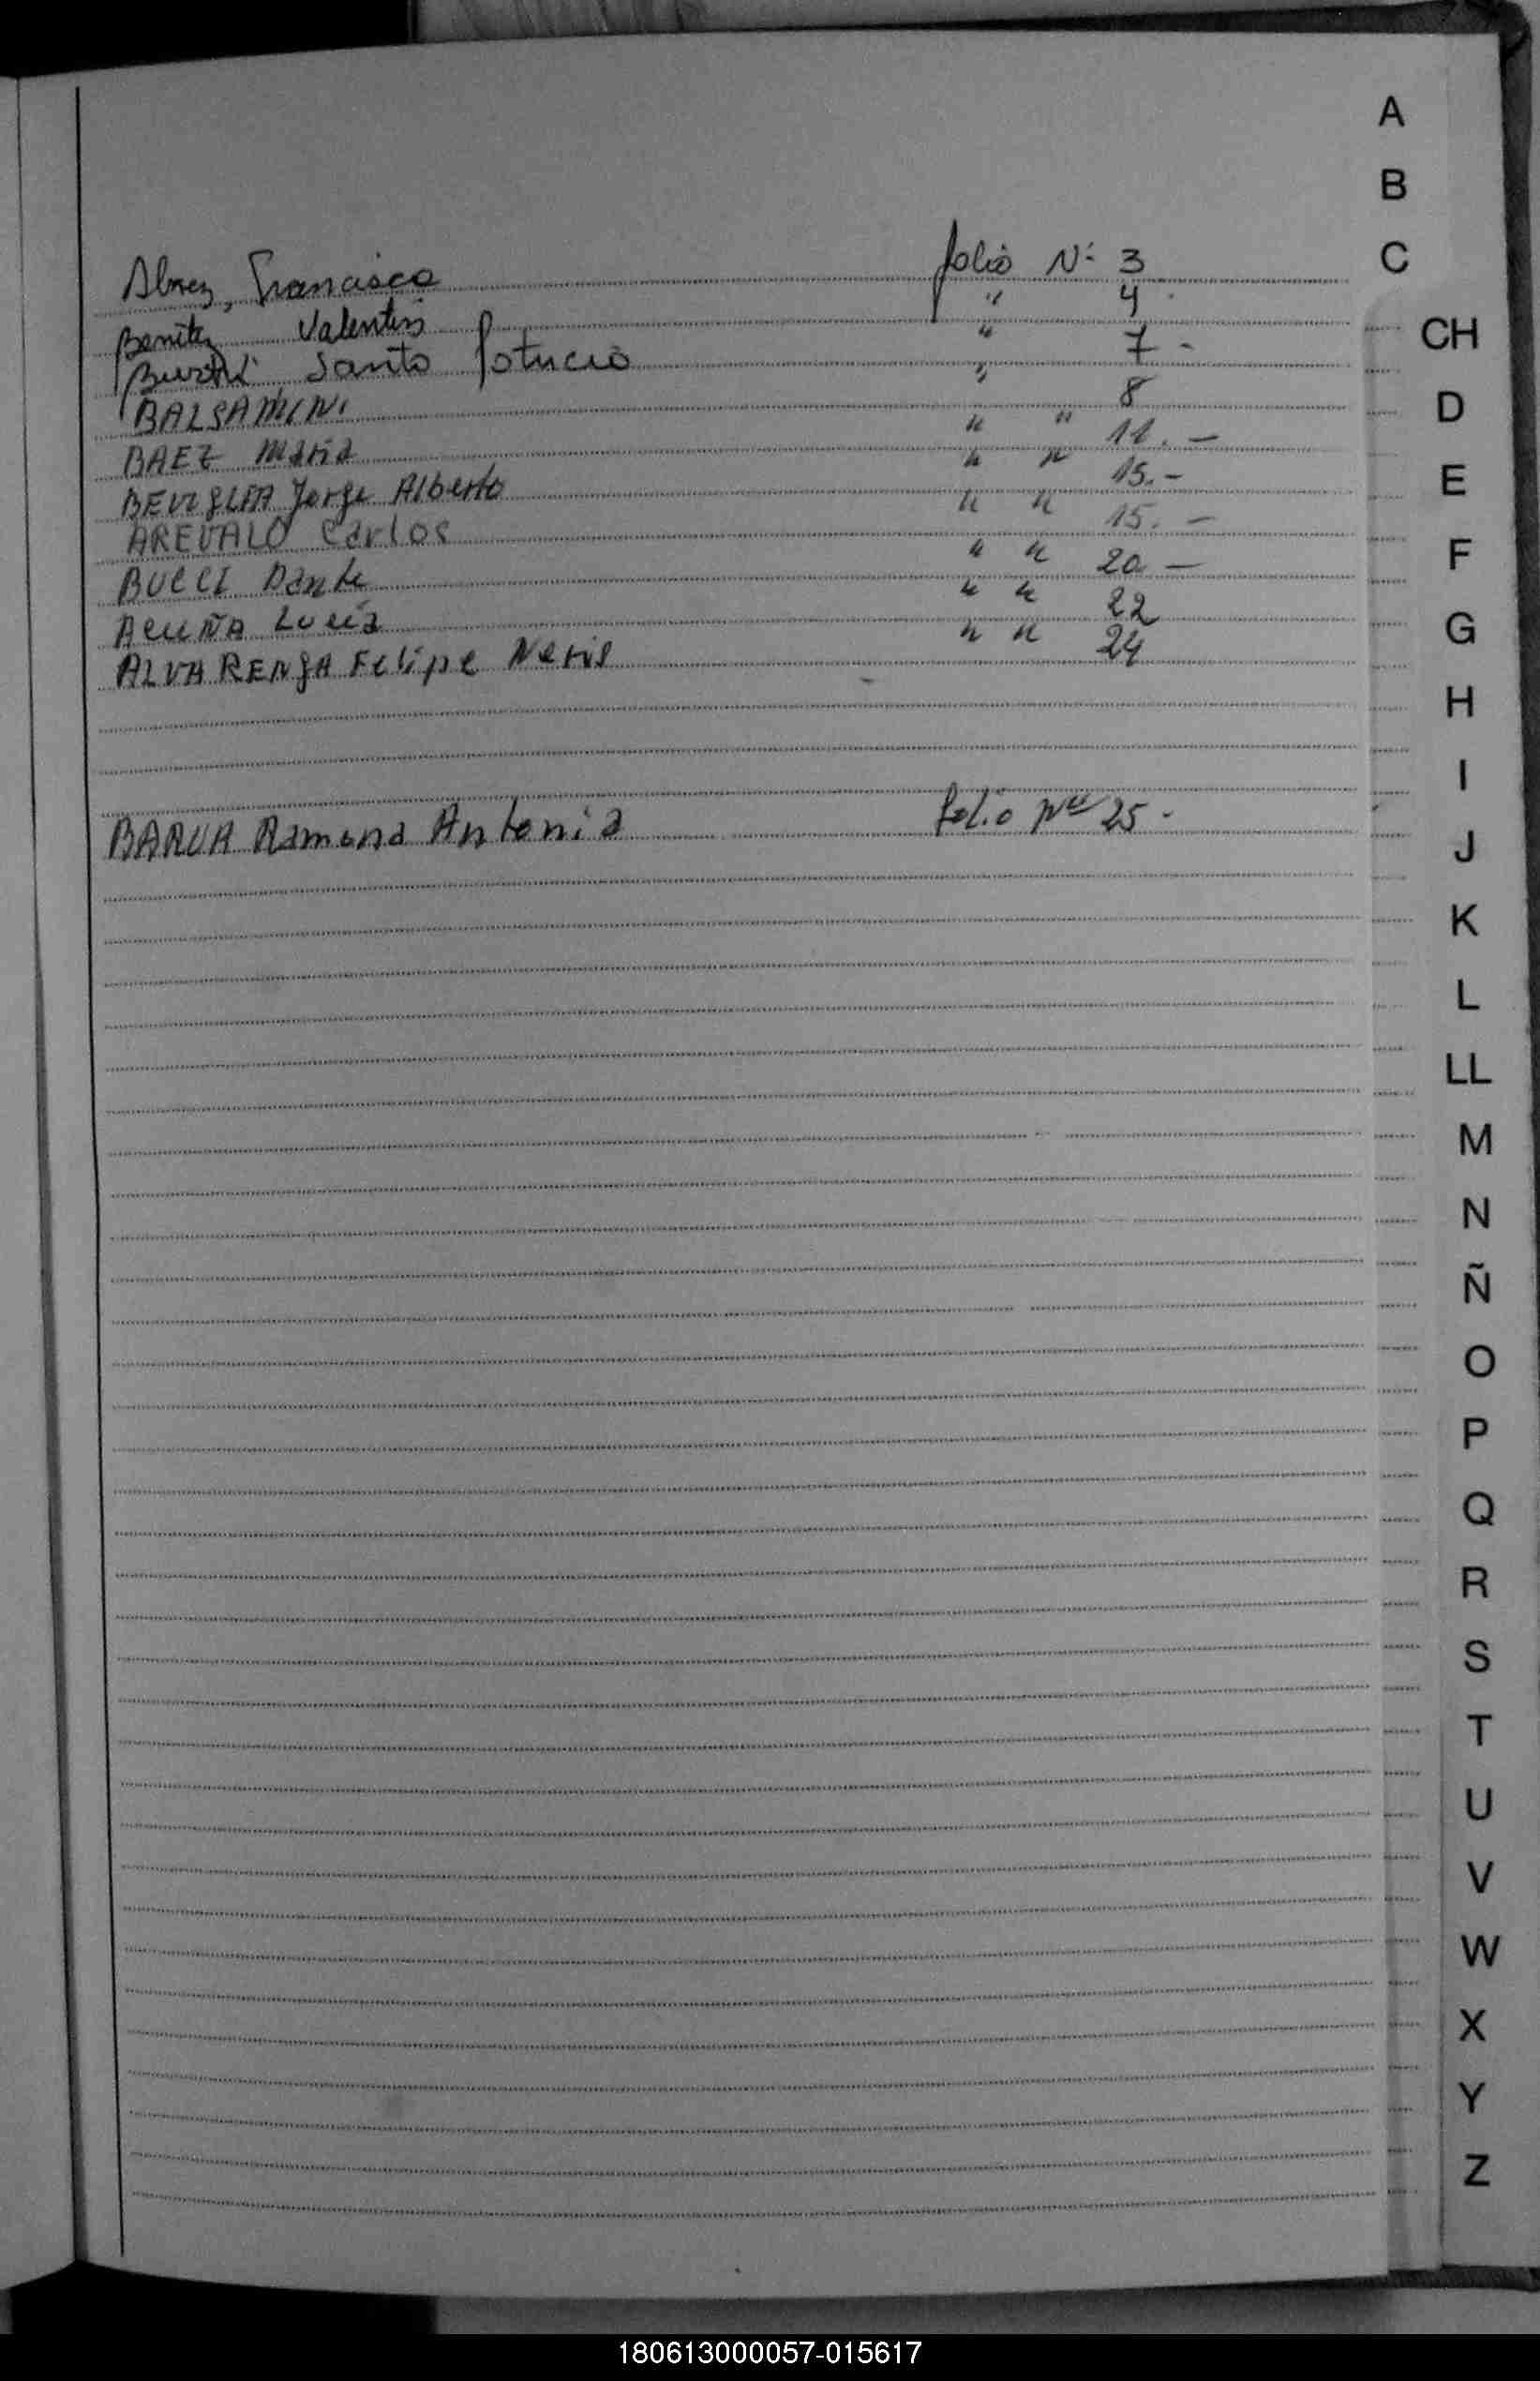 Francisco folio Nº 3
Benitez Valentin " 4
Santo " 7 -
BALSAMINI " 8
BAEZ Maria " " 11. -
BEVIGLIA Jorge Alberto " " 15. -
AREVALO Carlos " " 15. -
BUCCI Dante " " 20 -
ACUÑA Lucia " " 22
ALVARENGA Felipe Neris " " 24
BARUA Ramona Antonia folio Nº 25 -
A
B
C
CH
D
E
F
G
H
I
J
K
L
LL
M
N
Ñ
O
P
Q
R
S
T
U
V
W
X
Y
Z
180613000057-015617